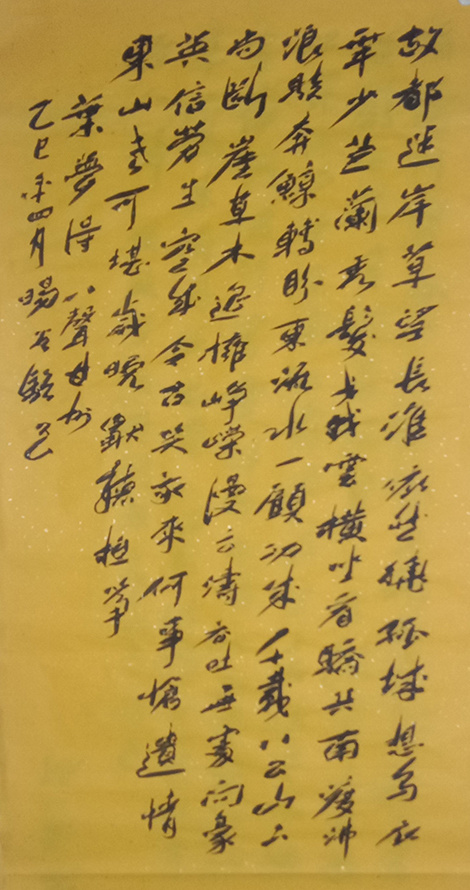 故都迷岸草望長淮依然繞孤城想烏衣
年少芝蘭秀髮戈戟雲橫坐看驕兵南渡沸
浪駭奔鯨轉盼東流水一顧功成千載八公山下
尚斷崖草木遙擁崢嶸漫云濤吞吐無處問豪
英信勞生空成今古笑我來何事愴遺情
東山老可堪歲晚獨聽桓箏
葉夢得八聲甘州
乙巳年四月